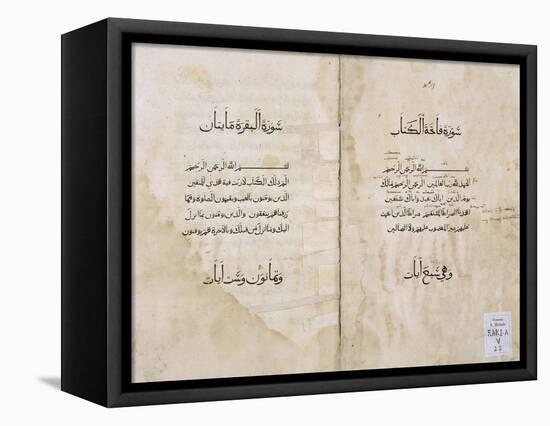 سورة فاتحة الكتاب
بسم الله الرحمن الرحيم
الحمد لله رب العالمين الرحمن الرحيم مالك
يوم الدين اياك نعبد واياك نستعين
اهدنا الصراط المستقيم صراط الذين انعمت
عليهم غير المغضوب عليهم ولا الضالين
وهي سبع آيات
سورة البقرة مايتان
بسم الله الرحمن الرحيم
الم ذلك الكتاب لا ريب فيه هدى للمتقين
الذين يؤمنون بالغيب ويقيمون الصلوة ومما
رزقناهم ينفقون والذين يؤمنون بما انزل
اليك وما انزل من قبلك وبالآخرة هم يوقنون
وثمانون وست آيات
RARI-A
V